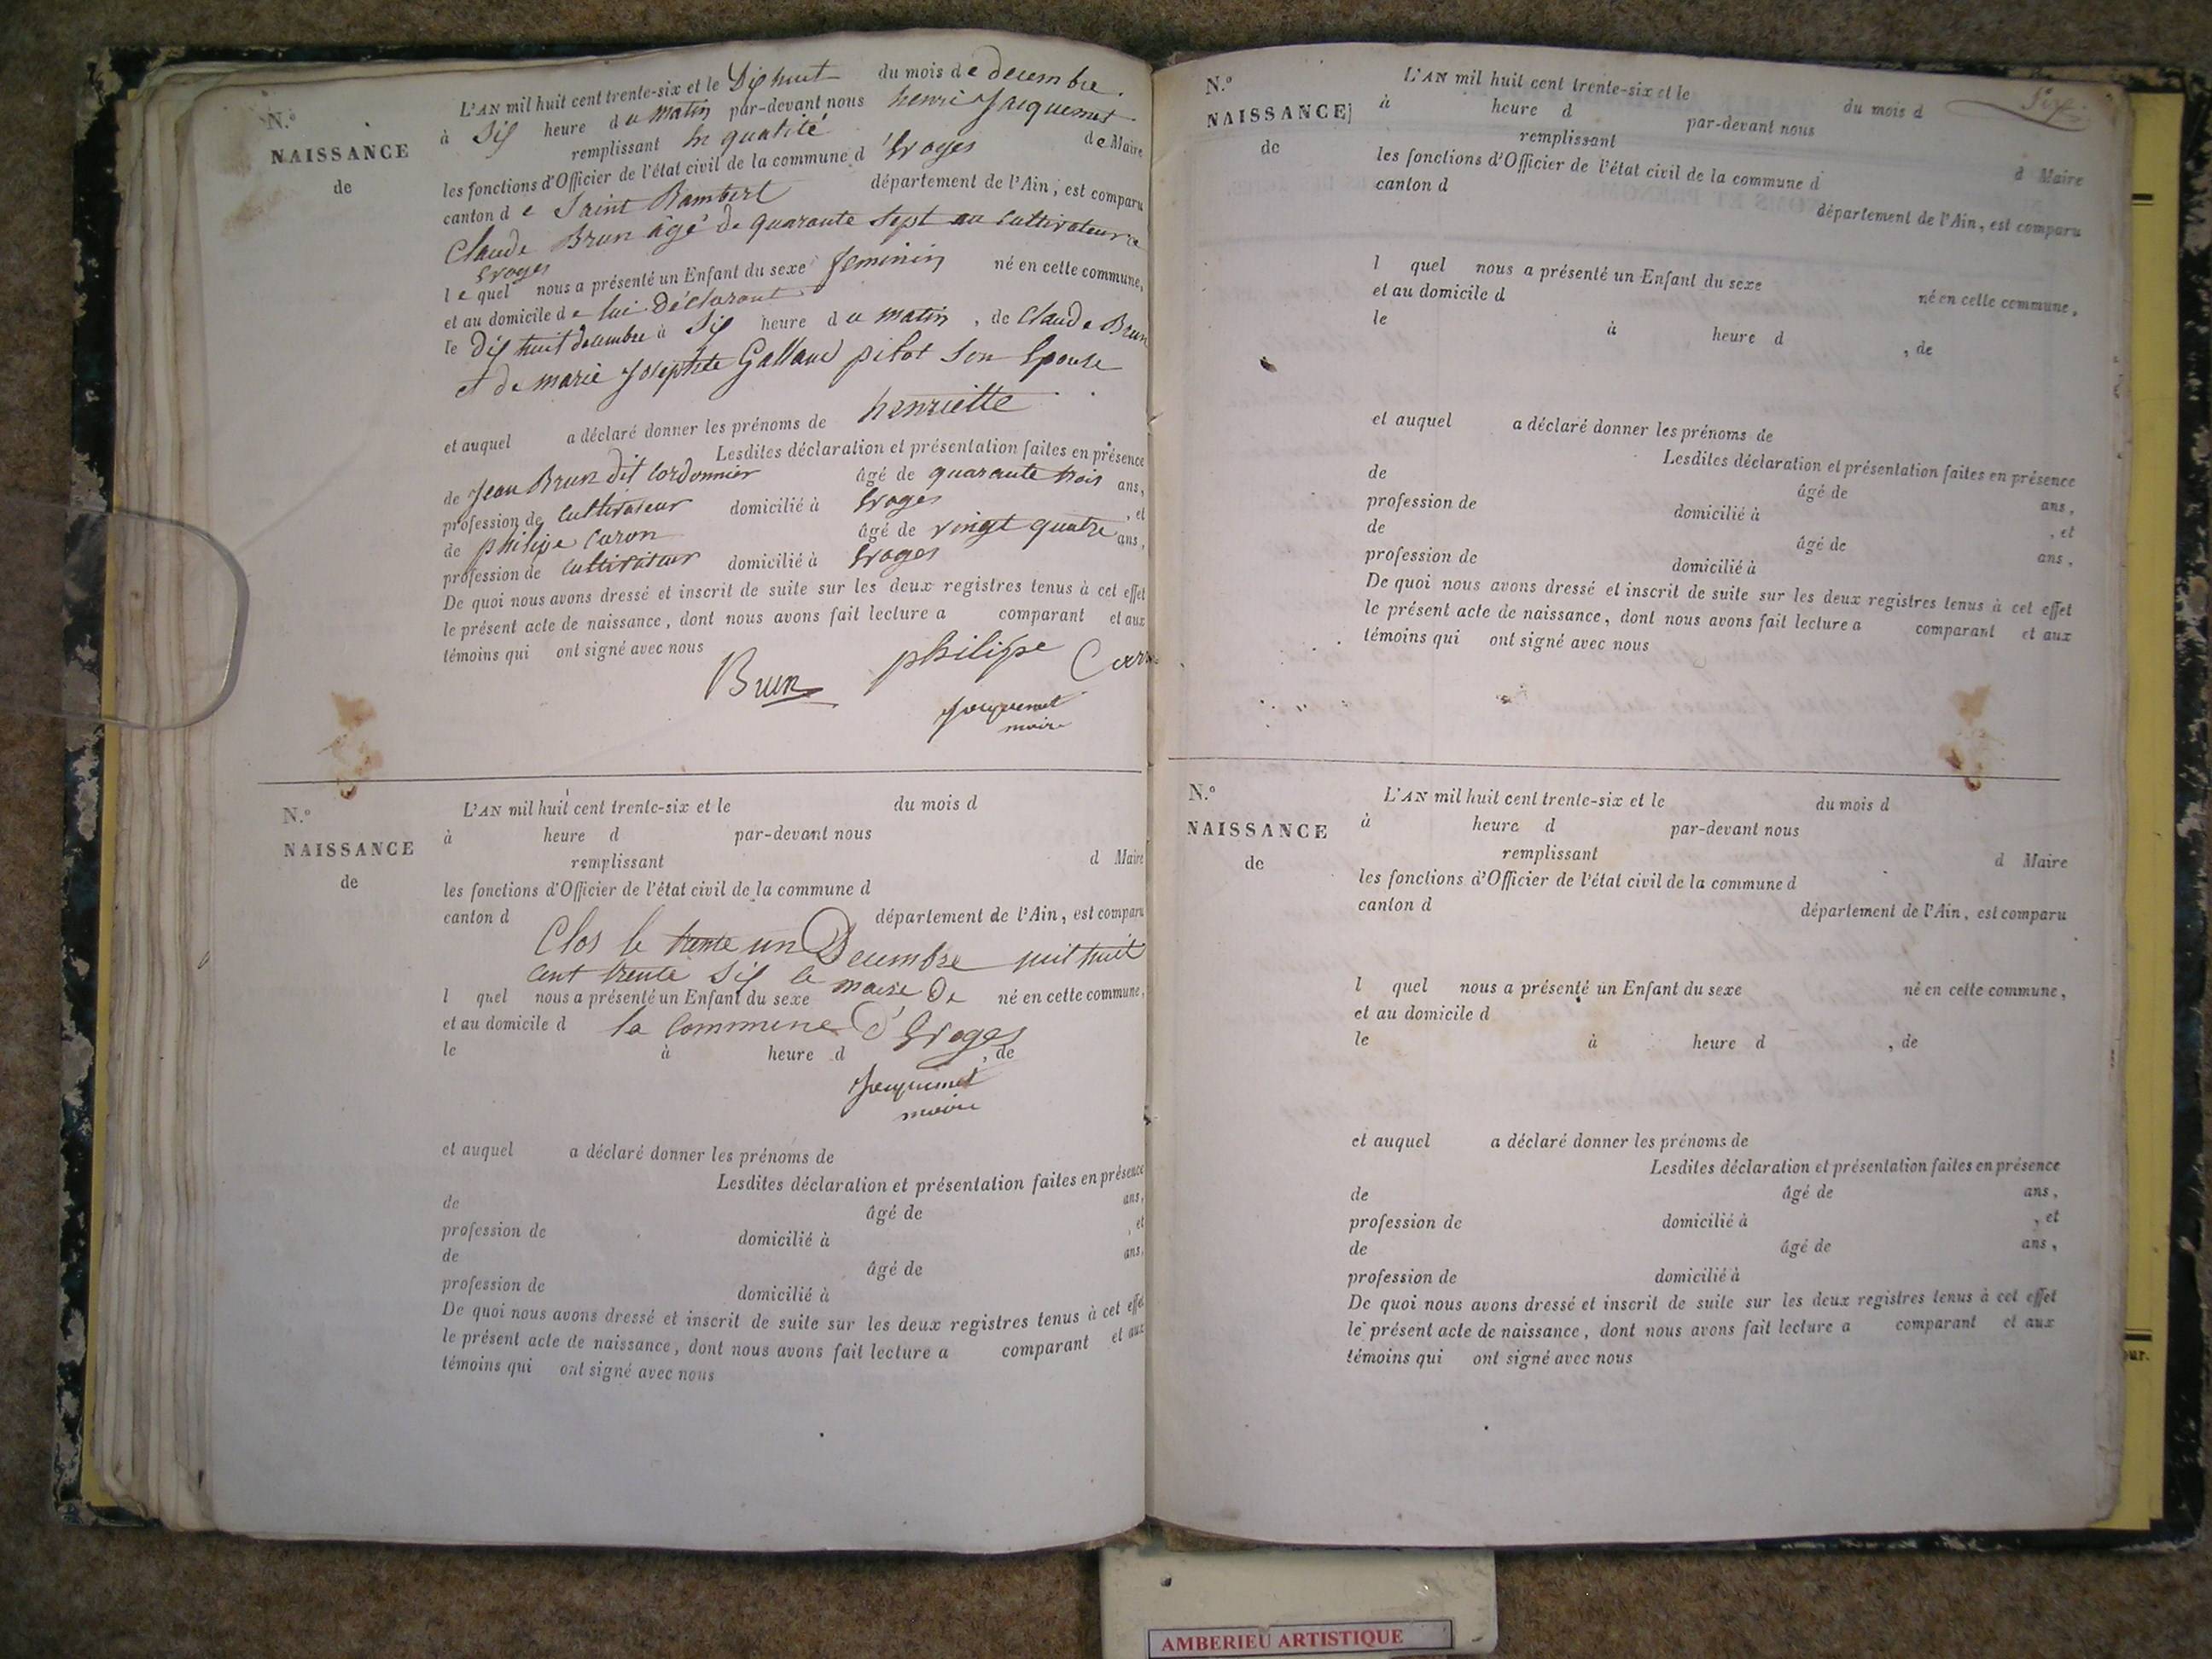 N.º
NAISSANCE
de
L'AN mil huit cent trente-six et le Dix huit du mois de decembre.
à Six heure du matin par-devant nous henri Jacquemet
remplissant En qualité de Maire
les fonctions d'Officier de l'état civil de la commune d'Evoges
canton de Saint Rambert département de l'Ain, est comparu
Claude Brun âgé de quarante sept an cultivateur a
Evoges
lequel nous a présenté un Enfant du sexe feminin né en cette commune,
et au domicile de lui déclarant
le Dix huit decembre à Six heure du matin, de Claude Brun
et de marie Josephte Galland pilot son Epouse
et auquel a déclaré donner les prénoms de henriette
Lesdites déclaration et présentation faites en présence
de Jean Brun dit Cordonnier âgé de quarante trois ans,
profession de cultivateur domicilié à Evoges, et
de philipe Caron âgé de vingt quatre ans,
profession de cultivateur domicilié à Evoges
De quoi nous avons dressé et inscrit de suite sur les deux registres tenus à cet effet
le présent acte de naissance, dont nous avons fait lecture a comparant et aux
témoins qui ont signé avec nous
Brun philipe
Jacquemet
maire
N.º
NAISSANCE
de
L'AN mil huit cent trente-six et le du mois d
à heure d par-devant nous
remplissant d Maire
les fonctions d'Officier de l'état civil de la commune d
canton d département de l'Ain, est comparu
Clos le trente un Decembre mil huit
cent trente Six le maire De
l quel nous a présenté un Enfant du sexe né en cette commune,
et au domicile d la commune d'Evoges
le à heure d , de
Jacquemet
maire
et auquel a déclaré donner les prénoms de
Lesdites déclaration et présentation faites en présence
de âgé de ans,
profession de domicilié à , et
de âgé de ans,
profession de domicilié à
De quoi nous avons dressé et inscrit de suite sur les deux registres tenus à cet effet
le présent acte de naissance, dont nous avons fait lecture a comparant et aux
témoins qui ont signé avec nous
N.º
NAISSANCE
de
L'AN mil huit cent trente-six et le du mois d
à heure d par-devant nous
remplissant d Maire
les fonctions d'Officier de l'état civil de la commune d
canton d département de l'Ain, est comparu
l quel nous a présenté un Enfant du sexe né en cette commune,
et au domicile d
le à heure d , de
et auquel a déclaré donner les prénoms de
Lesdites déclaration et présentation faites en présence
de âgé de ans,
profession de domicilié à , et
de âgé de ans,
profession de domicilié à
De quoi nous avons dressé et inscrit de suite sur les deux registres tenus à cet effet
le présent acte de naissance, dont nous avons fait lecture a comparant et aux
témoins qui ont signé avec nous
N.º
NAISSANCE
de
L'AN mil huit cent trente-six et le du mois d
à heure d par-devant nous
remplissant d Maire
les fonctions d'Officier de l'état civil de la commune d
canton d département de l'Ain, est comparu
l quel nous a présenté un Enfant du sexe né en cette commune,
et au domicile d
le à heure d , de
et auquel a déclaré donner les prénoms de
Lesdites déclaration et présentation faites en présence
de âgé de ans,
profession de domicilié à , et
de âgé de ans,
profession de domicilié à
De quoi nous avons dressé et inscrit de suite sur les deux registres tenus à cet effet
le présent acte de naissance, dont nous avons fait lecture a comparant et aux
témoins qui ont signé avec nous
AMBERIEU ARTISTIQUE